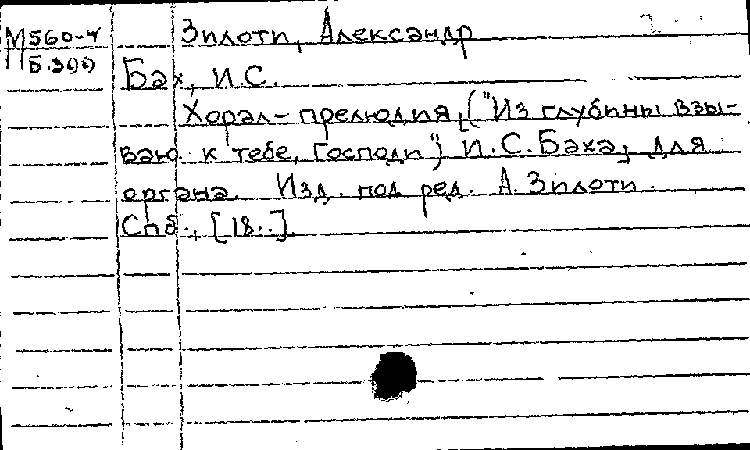 М560-4 Зилоти, Александр
Бах, И.С.
Хорал-прелюдия, ("Из глубины взы-
ваю к тебе, Господи") И.С.Баха, для
органа. Изд. под ред. А. Зилоти.
Спб., [18..].